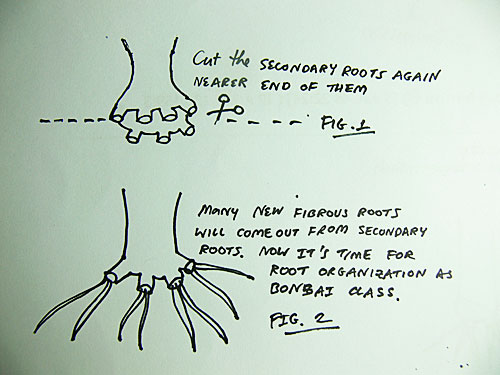 Cut the SECONDARY ROOTS AGAIN
NEARER END OF THEM
FIG.1
MANY NEW FIBROUS ROOTS
WILL COME OUT FROM SECONDARY
ROOTS. NOW IT'S TIME FOR
ROOT ORGANIZATION AS
BONSAI CLASS.
FIG. 2